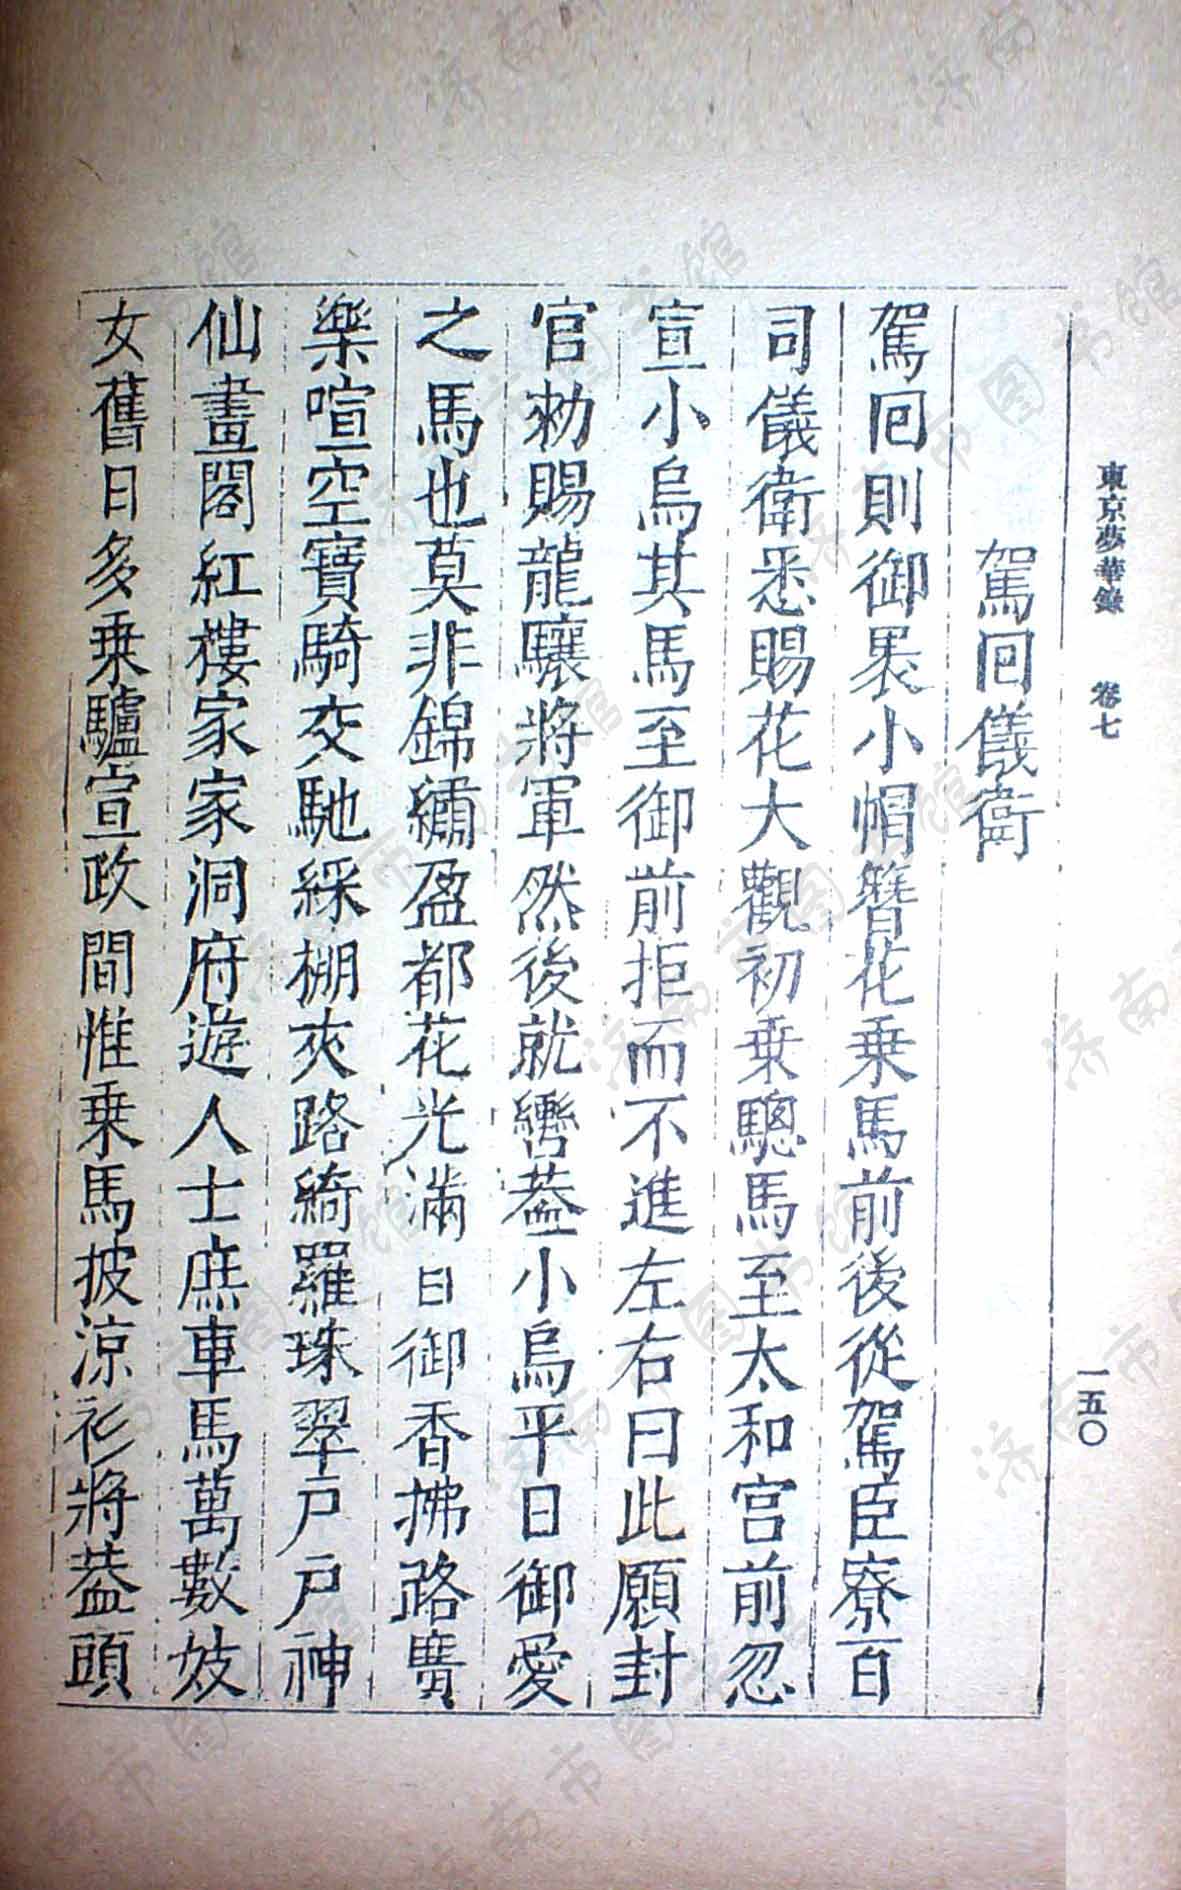 東京夢華錄 卷七 一五〇
駕回儀衛
駕回則御裹小帽簪花乗馬前後從駕臣寮百
司儀衛悉賜花大觀初乗驄馬至太和宫前忽
宣小烏其馬至御前拒而不進左右曰此願封
官勑賜龍驤將軍然後就轡葢小烏平日御愛
之馬也莫非錦繡盈都花光滿目御香拂路廣
樂喧空寶騎交馳綵棚夾路綺羅珠翠户户神
仙畫閣紅樓家家洞府遊人士庶車馬萬數妓
女舊日多乗驢宣政間惟乗馬披凉衫將葢頭
济南市图书馆